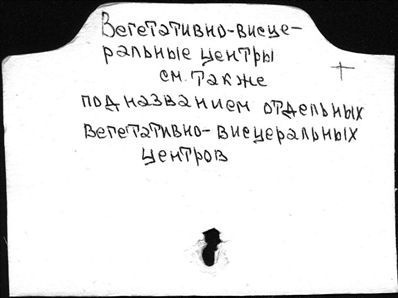 Вегетативно-висце-
ральные центры
см. также
под названием отдельных
вегетативно-висцеральных
центров